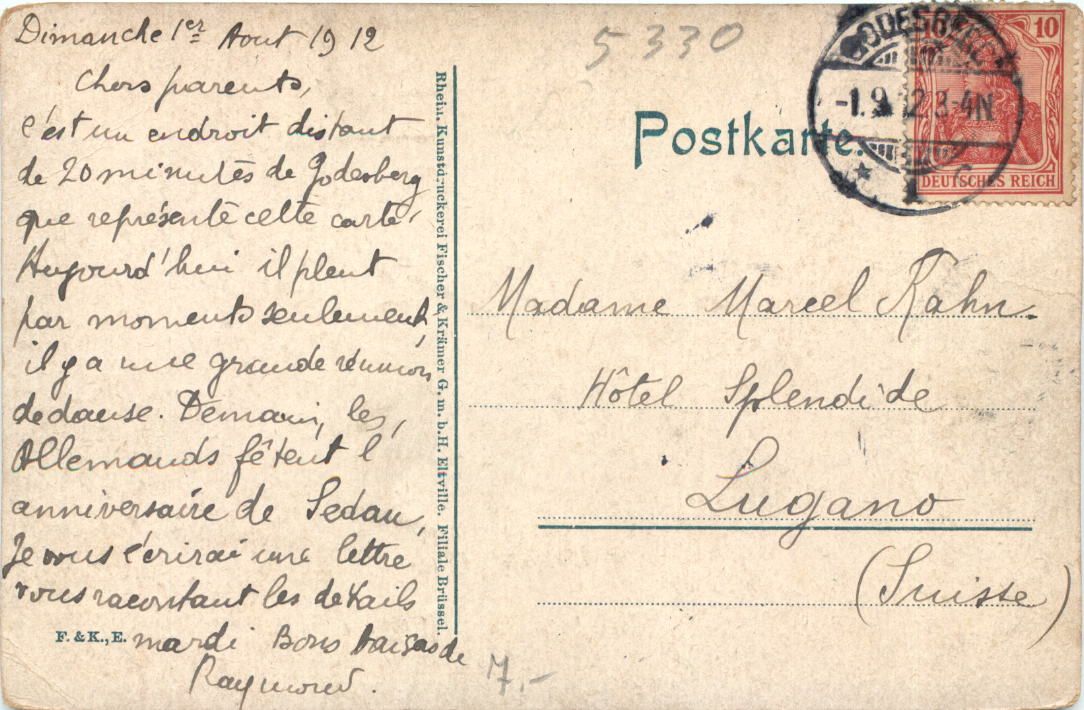 Dimanche 1er Aout 1912
Chers parents,
c'est un endroit distant
de 20 minutes de Godesberg
que représente cette carte.
Aujourd'hui il pleut
par moments seulement,
il y a une grande réunion
de danse. Demain, les
Allemands fêtent l'
anniversaire de Sedan,
Je vous écrirai une lettre
vous racontant les détails
mardi Bons baisers de
Raymond.
F. & K., E.
Rhein. Kunstdruckerei Fischer & Krämer G. m. b. H. Eltville. Filiale Brüssel.
5330
Postkarte.
GODESBERG
-1.9.12.3-4N
10
DEUTSCHES REICH
Madame Marcel Kahn.
Hôtel Splendide
Lugano
(Suisse)
7.-